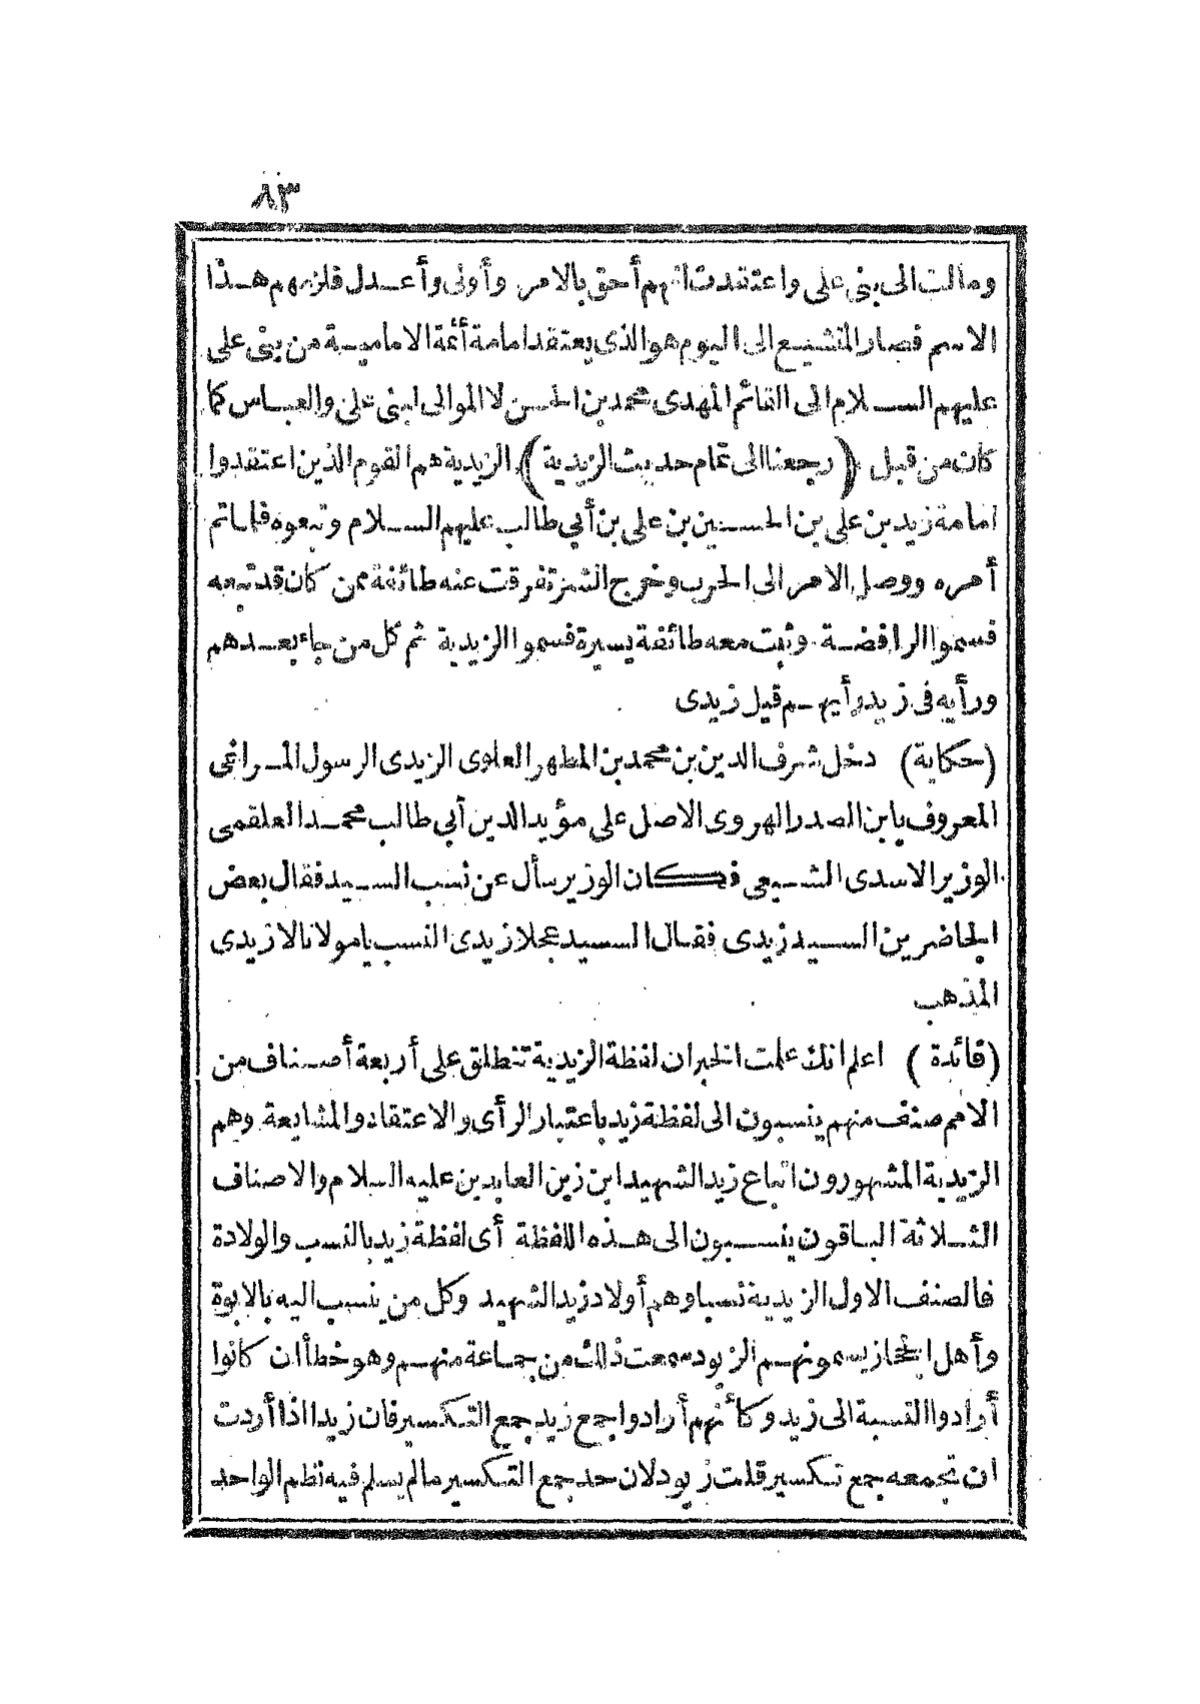 ٨٣
ومالت الى بنى على واعتقدت انهم أحق بالامر وأولى وأعدل فلزمهم هذا
الاسم فصار المتشيع الى اليوم هو الذى يعتقد امامة أئمة الامامية من بنى على
عليهم السلام الى القائم المهدى محمد بن الحسن لا الموالى لبنى على والعباس كما
كان من قبل (رجعنا الى تمام حديث الزيدية) الزيدية هم القوم الذين اعتقدوا
امامة زيد بن على بن الحسين بن على بن أبي طالب عليهم السلام وتبعوه فلما تم
أمره ووصل الامر الى الحرب وخرج الشر تفرقت عنه طائفة ممن كان قد تبعه
فسموا الرافضة وثبت معه طائفة يسيرة فسموا الزيدية ثم كل من جاء بعدهم
ورأيه فى زيد رأيهم قيل زيدى
(حكاية) دخل شرف الدين بن محمد بن المطهر العلوى الزيدى الرسول المراغى
المعروف بابن الصدر الهروى الاصل على مؤيد الدين أبي طالب محمد العلقمى
الوزير الاسدى الشيعى فكان الوزير سأل عن نسب السيد فقال بعض
الحاضرين السيد زيدى فقال السيد عجلا زيدى النسب يا مولانا لا زيدى
المذهب
(فائدة) اعلم انك علمت الخبر ان لفظة الزيدية تنطلق على أربعة أصناف من
الامم صنف منهم ينسبون الى لفظة زيد باعتبار الرأى والاعتقاد والمشايعة وهم
الزيدية المشهورون اتباع زيد الشهيد ابن زين العابدين عليه السلام والاصناف
الثلاثة الباقون ينسبون الى هذه اللفظة أى لفظة زيد بالنسب والولادة
فالصنف الاول الزيدية نسبا وهم أولاد زيد الشهيد وكل من ينسب اليه بالابوة
وأهل الحجاز يسمونهم الزيود سمعت ذلك من جماعة منهم وهو خطأ ان كانوا
أرادوا النسبة الى زيد وكأنهم أرادوا جمع زيد جمع التكسير فان زيدا اذا أردت
ان تجمعه جمع تكسير قلت زيود لان حد جمع التكسير ما لم يسلم فيه نظم الواحد